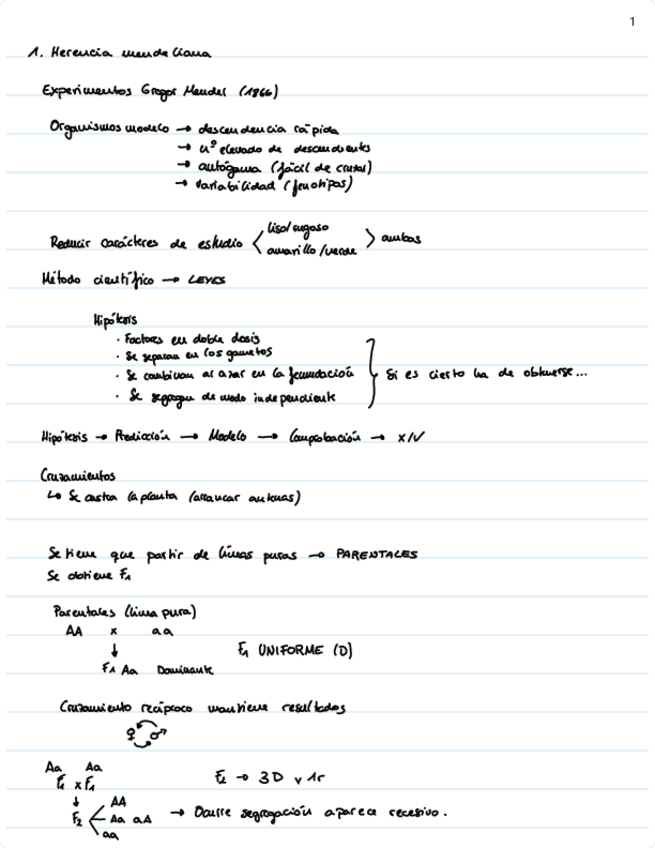 1
1. Herencia mendeliana
Experimentos Gregor Mendel (1866)
Organismos modelo → descendencia rápida
→ nº elevado de descendientes
→ autógama (fácil de cruzar)
→ variabilidad (fenotipos)
Reducir carácteres de estudio < liso/rugoso
amarillo/verde > ambas
Método científico → LEYES
Hipótesis
· Factores en doble dosis
· Se separan en los gametos
· Se combinan al azar en la fecundación } Si es cierto ha de obtenerse...
· Se segregan de modo independiente
Hipótesis → Predicción → Modelo → Comprobación → X/V
Cruzamientos
↳ Se castra la planta (arrancar anteras)
Se tiene que partir de líneas puras → PARENTALES
Se obtiene F1
Parentales (línea pura)
AA x aa
↓ F1 UNIFORME (D)
F1 Aa Dominante
Cruzamiento recíproco mantiene resultados
♀ ♂
Aa Aa
F1 x F1 F2 → 3D y 1r
↓ AA
F2 < Aa aA → Ocurre segregación aparece recesivo.
aa